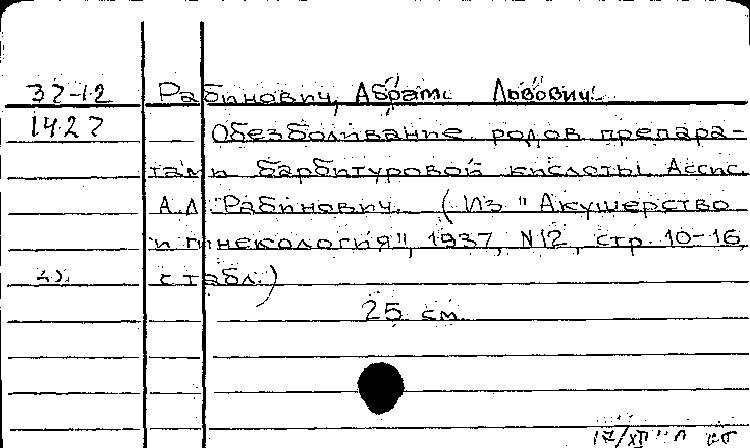 37-12 Рабинович, Абрам Львович.
1427 Обезболивание родов препара-
тами барбитуровой кислоты Ассис.
А.Л. Рабинович. (Из "Акушерство
и гинекология", 1937, N12, стр. 10-16,
с табл.)
25 см
17/XII